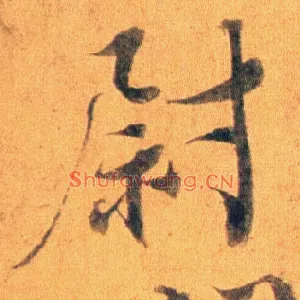 尉
Shufawang.CN